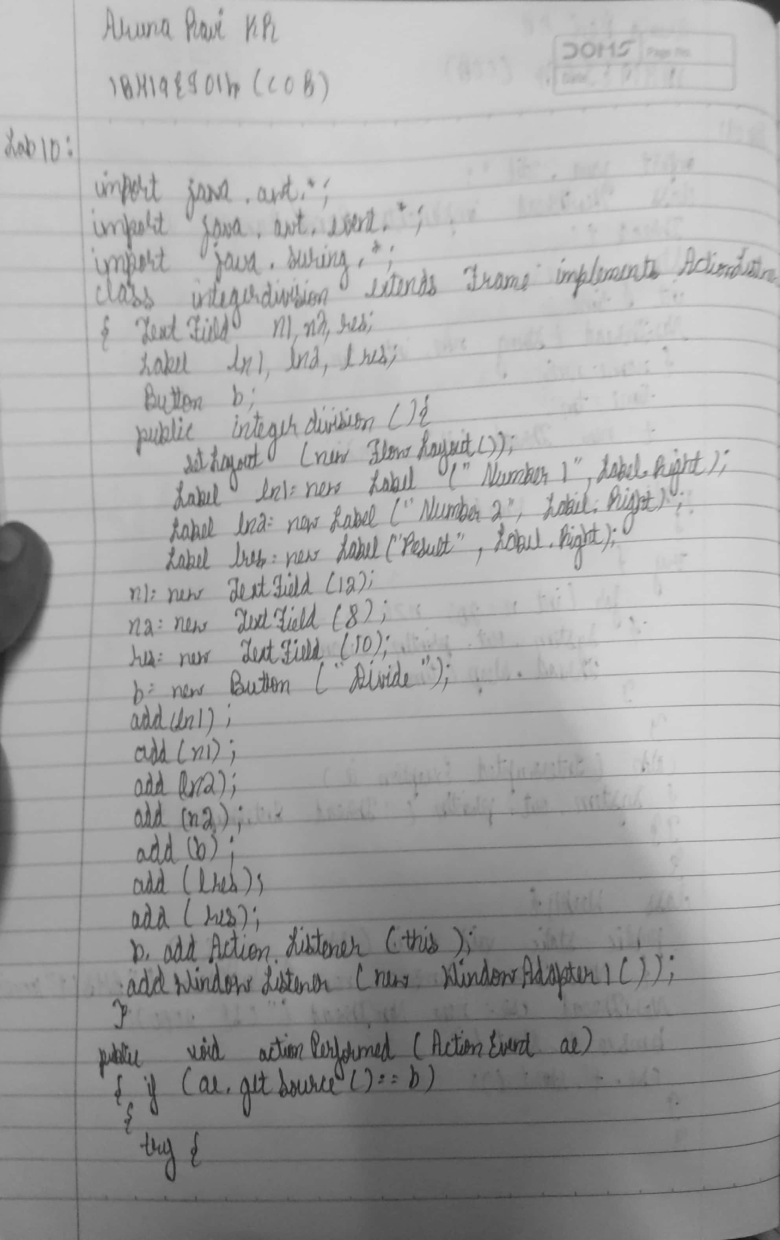 Aruna Ravi KR
DOMS Page No.
Date
(COB)
Lab 10:
import java.awt.*;
import java.awt.event.*;
import java.swing.*;
class integerdivision extends Frame implements ActionListene
{ TextField n1, n2, res;
Label ln1, ln2, lres;
Button b;
public integerdivision () {
setLayout (new FlowLayout());
Label ln1= new Label (" Number 1", Label.Right);
Label ln2= new Label ("Number 2", Label.Right);
Label lres= new Label ("Result", Label.Right);
n1= new TextField (12);
n2= new TextField (8);
res= new TextField (10);
b= new Button ("Divide");
add(ln1);
add (n1);
add (ln2);
add (n2);
add (b);
add (lres);
add (res);
b. add Action Listener (this);
add Window Listener (new WindowAdapter1());
}
public void actionPerformed (ActionEvent ae)
{ if (ae.getSource()== b)
{
try {